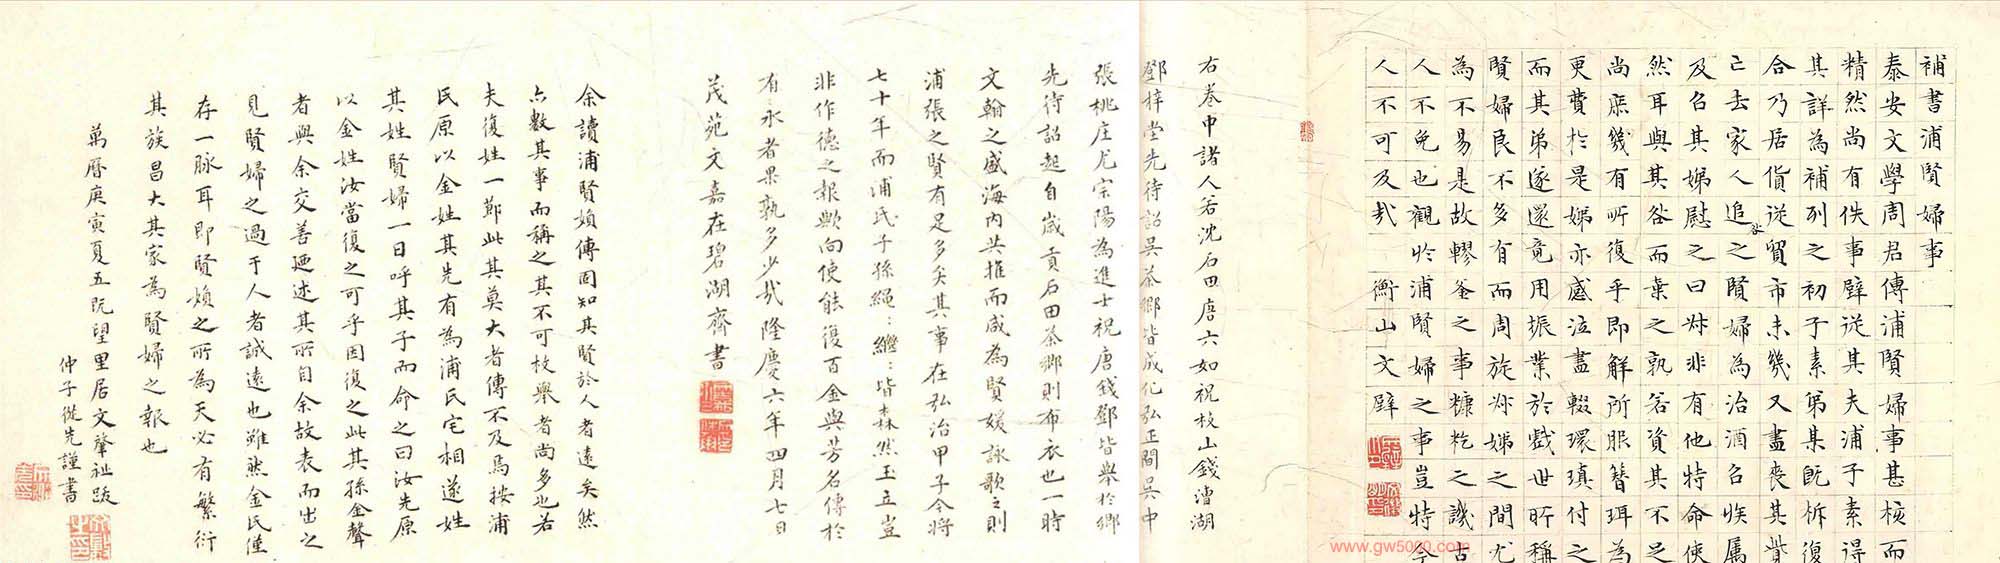 補書浦賢婦事
泰安文學周君傳浦賢婦事甚核而
精然尚有佚事壁從其夫浦子素得
其詳為補列之初子素弟某既析復
合乃居貨從賈市未幾又盡喪其貲
亡去家人追之賢婦為治酒召族屬
及召其娣慰之曰叔非有他特命使
然耳與其咎而棄之孰若資其不足
尚庶幾有所復乎即解所服簪珥為
更費於是娣亦感泣盡輟環瑱付之
而其弟遂還竟用振業於戲世所稱
賢婦民不多有而周旋叔娣之間尤
為不易是故轑釜之事糠籺之譏古
人不免也觀於浦賢婦之事豈特今
人不可及哉 衡山文壁
右卷中諸人若沈石田唐六如祝枝山錢漕湖
鄧梓堂先待詔吳茶鄉皆成化弘正間吳中
張桃庄尤宗陽為進士祝唐錢鄧皆舉於鄉
先待詔起自歲貢石田茶鄉則布衣也一時
文翰之盛海內共推而咸為賢媛詠歌之則
浦張之賢有足多矣其事在弘治甲子今將
七十年而浦氏子孫繩〻繼〻皆森然玉立豈
非作德之報歟向使能復百金與芳名傳於
有永者果孰多少哉隆慶六年四月七日
茂苑文嘉在碧湖齋書
余讀浦賢媍傳固知其賢於人者遠矣然
亦數其事而稱之其不可枚舉者尚多也若
夫復姓一節此其莫大者傳不及焉按浦
氏原以金姓其先有為浦氏宅相遂姓
其姓賢婦一日呼其子而命之曰汝先原
以金姓汝當復之可乎因復之此其孫金聲
者與余交善廼述其所自余故表而出之
見賢婦之過于人者誠遠也雖然金氏僅
存一脉耳即賢媍之所為天必有繁衍
其族昌大其家為賢婦之報也
萬曆庚寅夏五既望里居文肇祉跋
仲子從先謹書
www.gw5000.com